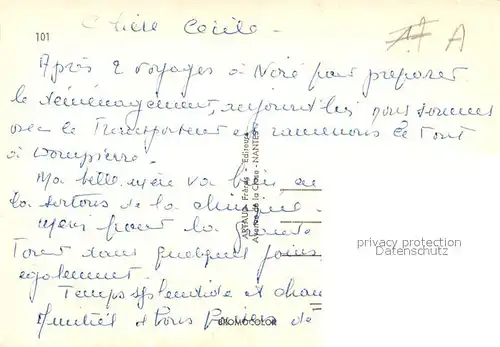 Chère Cécile -
101
Après 2 voyages à Niré pour préparer
le déménagement, aujourd'hui nous sommes
avec le Transporteur et ramenons le Tout
à Dompierre.
Ma belle mère va bien
la sortons de la clinique
pour la
dans quelques jours
également.
Temps splendide et chaud
Amitiés et bons de
ARTAUD Frères - Editeurs
Avenue de la Close - NANTES
PROMOCOLOR
privacy protection
Datenschutz